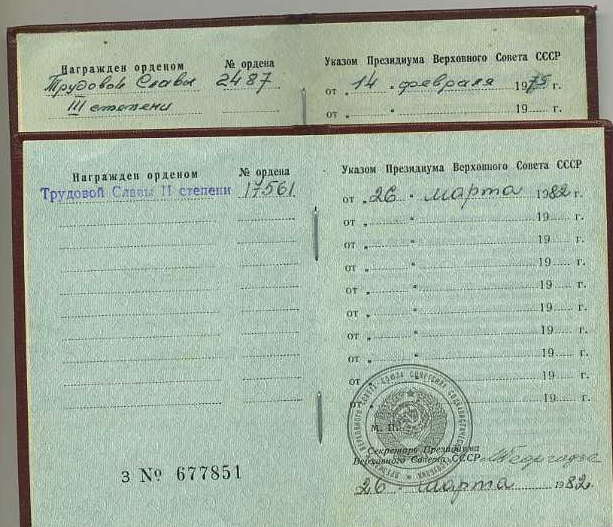 Награжден орденом № ордена Указом Президиума Верховного Совета СССР
Трудовой Славы 2487 от „ 14 " февраля 1975 г.
III степени от „ " 19 г.
Награжден орденом № ордена Указом Президиума Верховного Совета СССР
Трудовой Славы II степени 17561 от „ 26 " марта 1982 г.
от „ " 19 г.
от „ " 19 г.
от „ " 19 г.
от „ " 19 г.
от „ " 19 г.
от „ " 19 г.
от „ " 19 г.
от „ " 19 г.
от „ " 19 г.
М. П.
Секретарь Президиума
Верховного Совета СССР
З № 677851
26 марта 1982